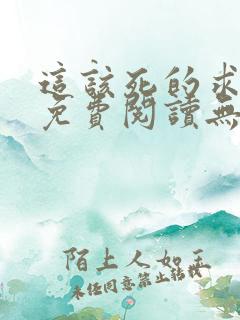 這該死的求
免費閱讀無
陌上人如玉
未经同意禁止转载